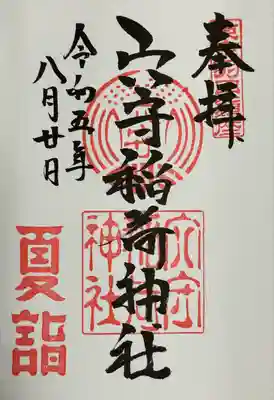 奉拝
穴守稲荷神社
令和五年
八月廿日
夏詣
穴守
稲荷
神社